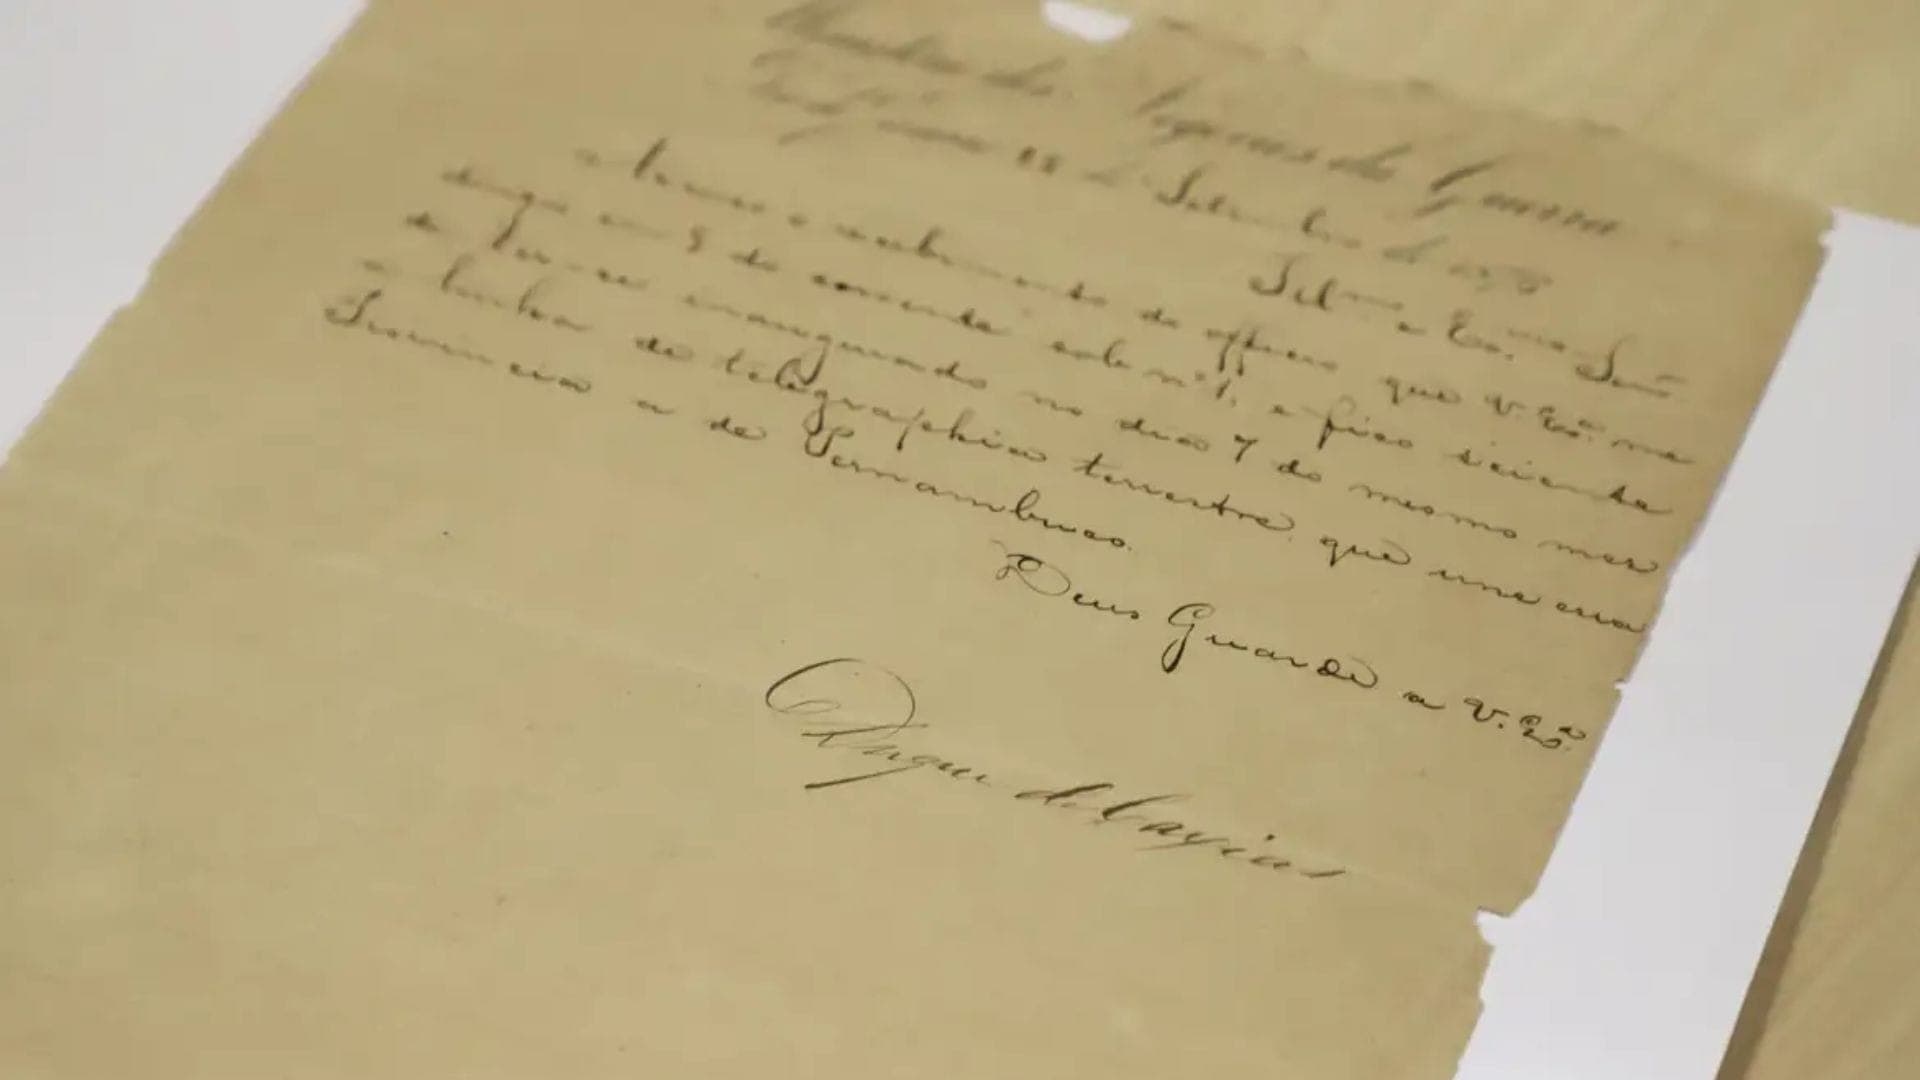 Negocios da Guerra
de Setembro de
Illmo e Exmo Senr
o recebimento do officio que V. Exa. me
em 5 do corrente sob nº 1, e fico sciente
de ter-se inaugurado no dia 7 do mesmo mez
a linha telegraphica terrestre, que une essa
Provincia a de Pernambuco.
Deus Guarde a V. Exa.
Duque de Caxias